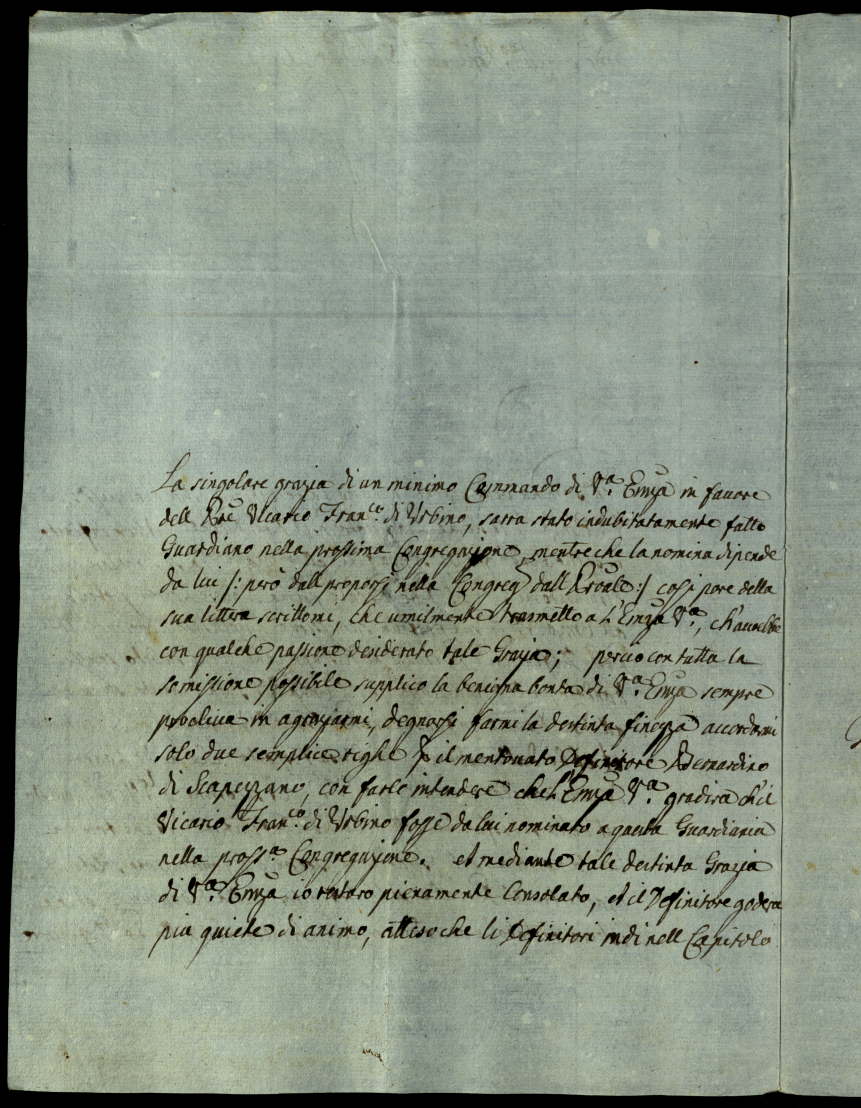 La singolare grazia di un minimo Commando di V.ª Emza in favore
dell Rñe Vicario Fran.co di Urbino, sarra stato indubitatamente fatto
Guardiano nella prossima Congregazione, mentre che la nomina dipende
da lui /: però dall proporsi nella Congreg dall Provale :/ cossi pare della
sua littera scrittomi, che umilmente trasmetto a L'Emza V.ª, ch'averebbe
con qualche passione desiderato tale Grazia; percio con tutta la
somissione possibile supplico la benigna bonta di V.ª Emza sempre
procliva in agraziarmi, degnarsi farmi la destinta finezza accordarmi
solo due semplice righe p il mentovato Definitore Bernardino
di Scapezzano, con farle intendere che L'Emza V.ª gradira ch'il
Vicario Fran.co di Urbino fosse da lui nominato a questa Guardiania
nella pross.ª Congregazione. et mediante tale destinta Grazia
di V.ª Emza io restaro pienamente Consolato, et il Definitore godera
piu quiete di animo, atteso che li Definitori indi nell Capitolo